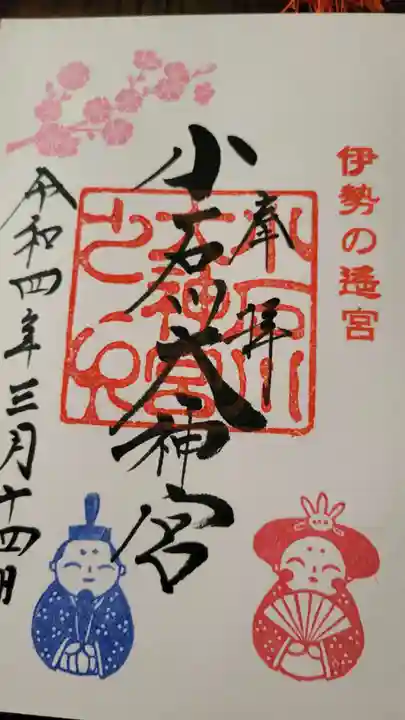 伊勢の遥宮
奉拝
小石川大神宮
小石川
大神宮
之印
令和四年三月十四日